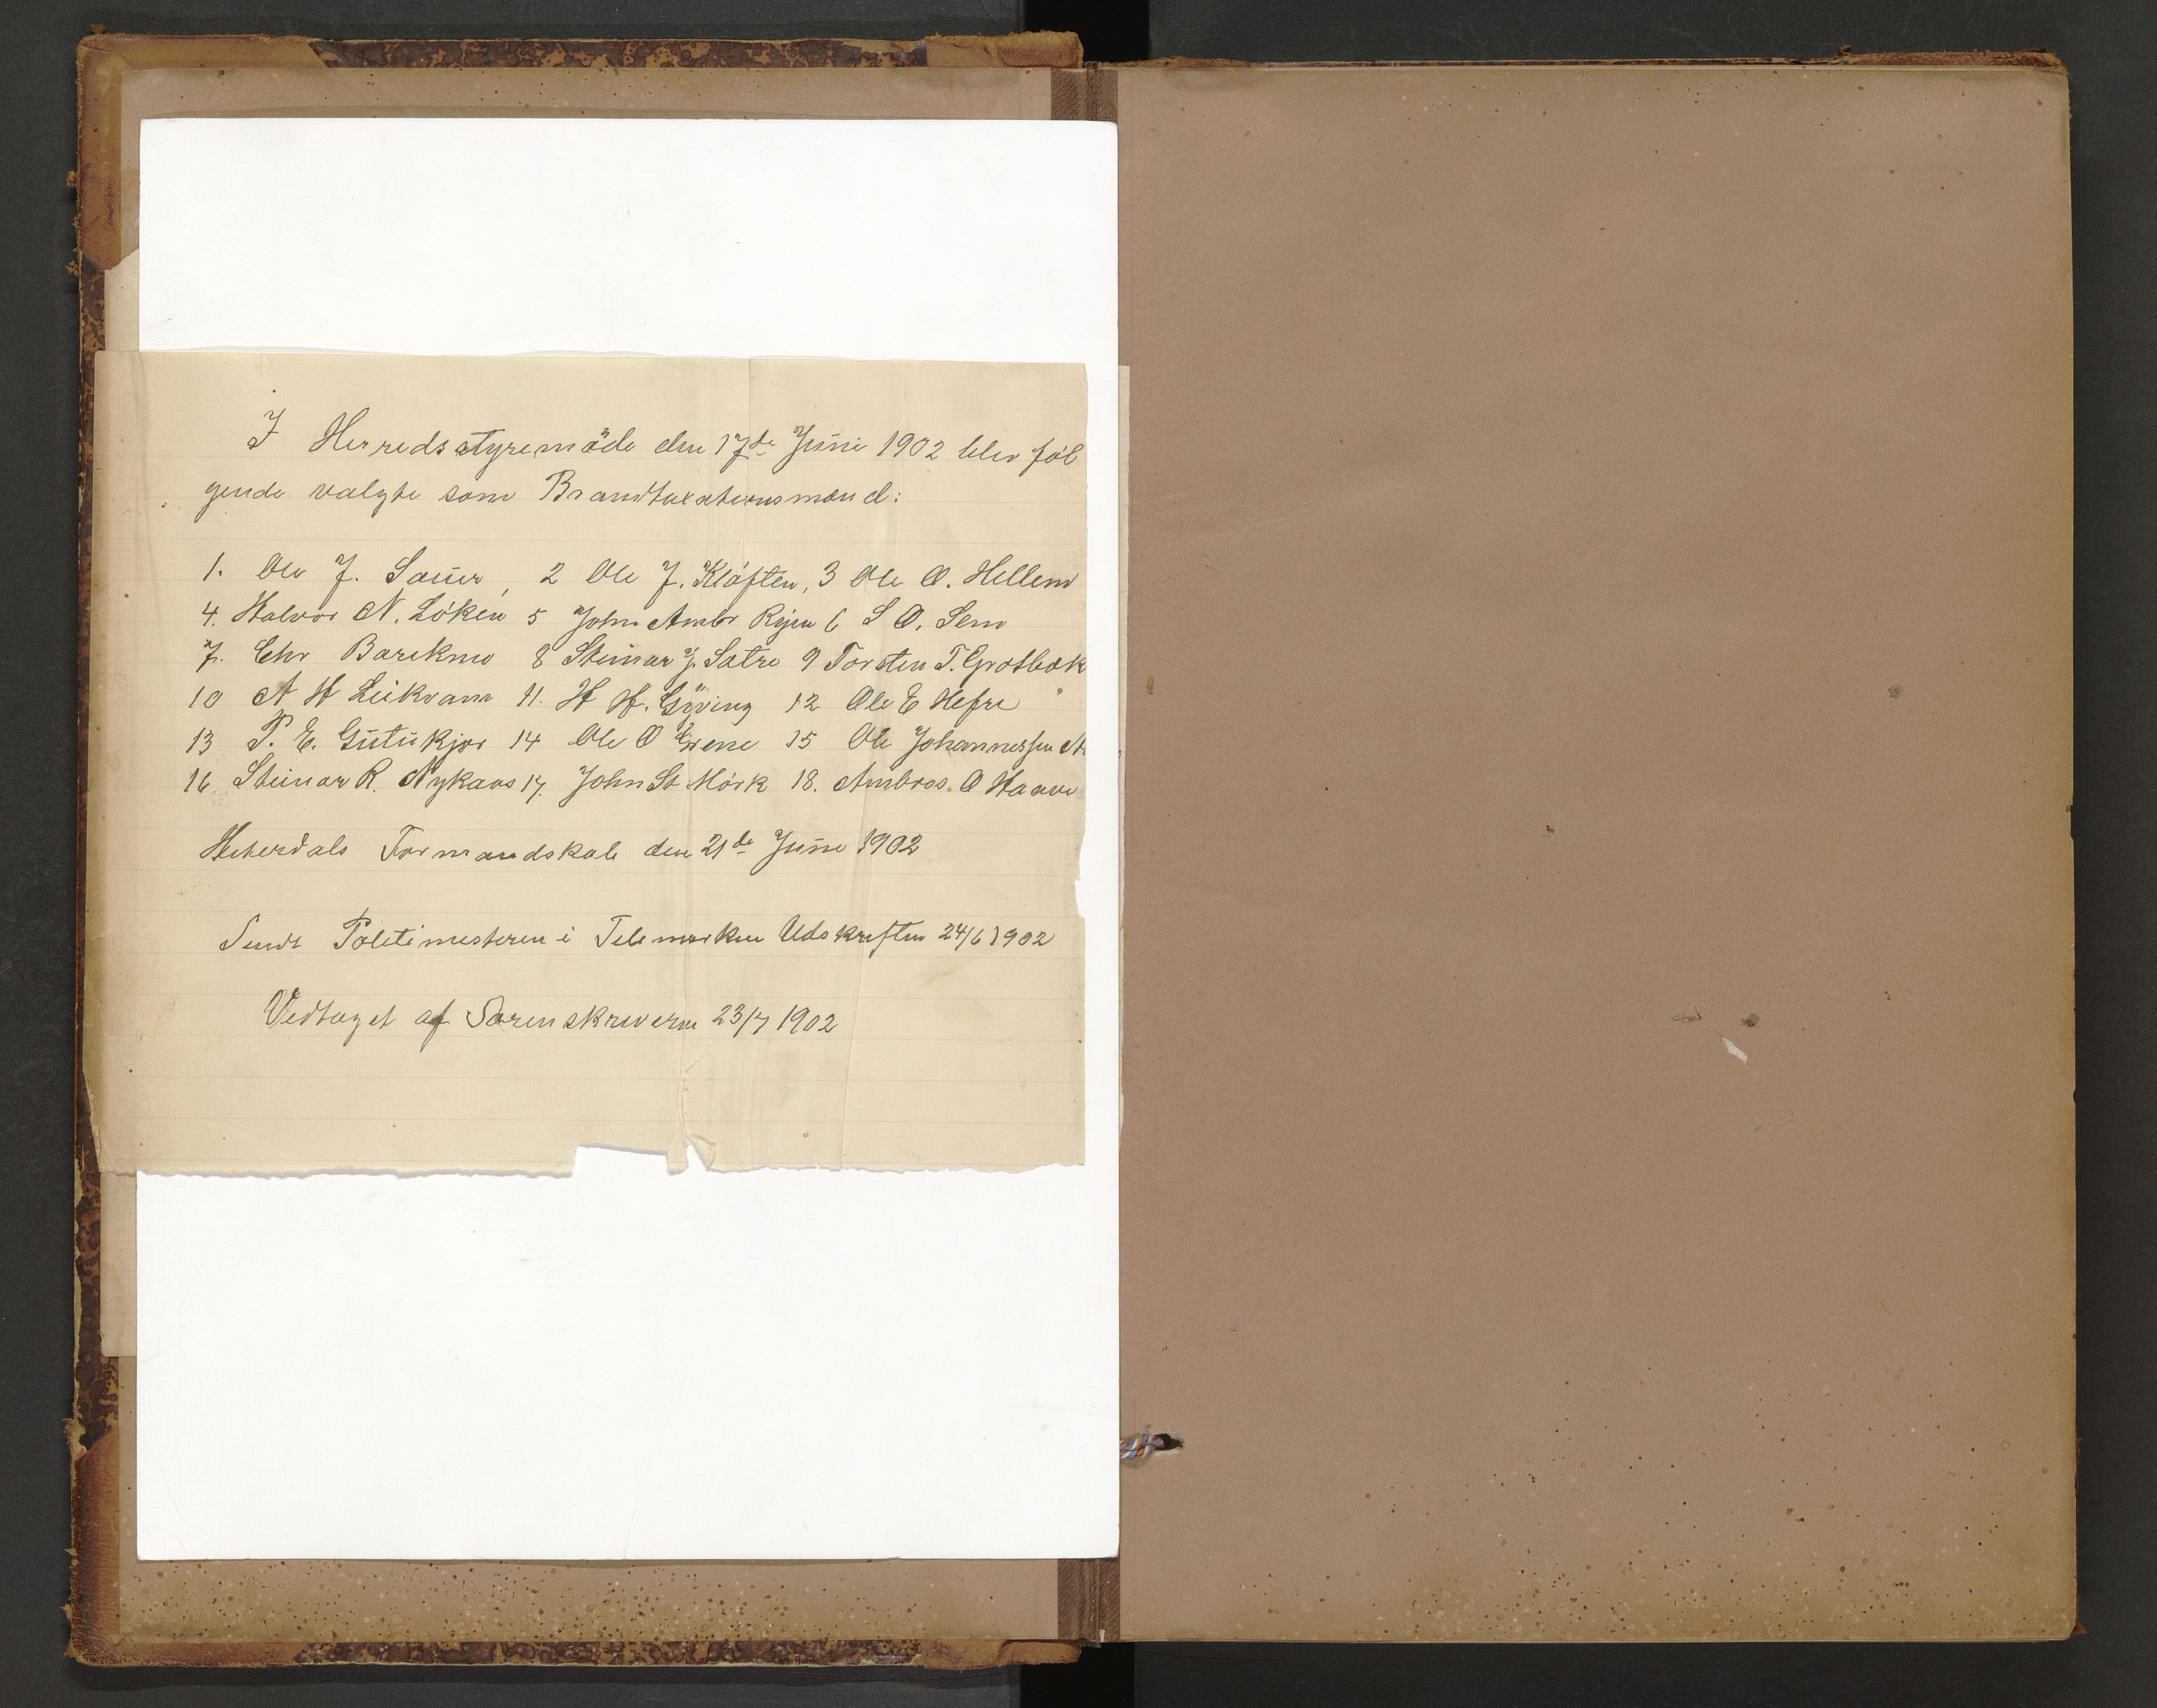 I Herredsstyremöde den 17de Juni 1902 blev föl
gende valgte som Brandtaxationsmænd:
1. Ole J. Sauer, 2 Ole J. Kløften, 3 Ole O. Hellem
4. Halvor N. Løken 5 John Ambr Ryen 6 S O. Sem
7. Chr Barekmo 8 Steinar J. Sætre 9 Torsten T. Grotbæk
10 A H Leikvam 11. H H. Gÿving 12 Ole E Hefre
13 P. E. Gutukjær 14 Ole O Grene 15 Ole Johannessen
16 Steinar R. Nykaas 17. John St Mörk 18. Ambros. O Haave
Hiterdals Formandskab den 21de Juni 1902
Sendt Politimesteren i Telemarken Udskriften 24/6 1902
Vedtaget af Sorenskriveren 23/7 1902